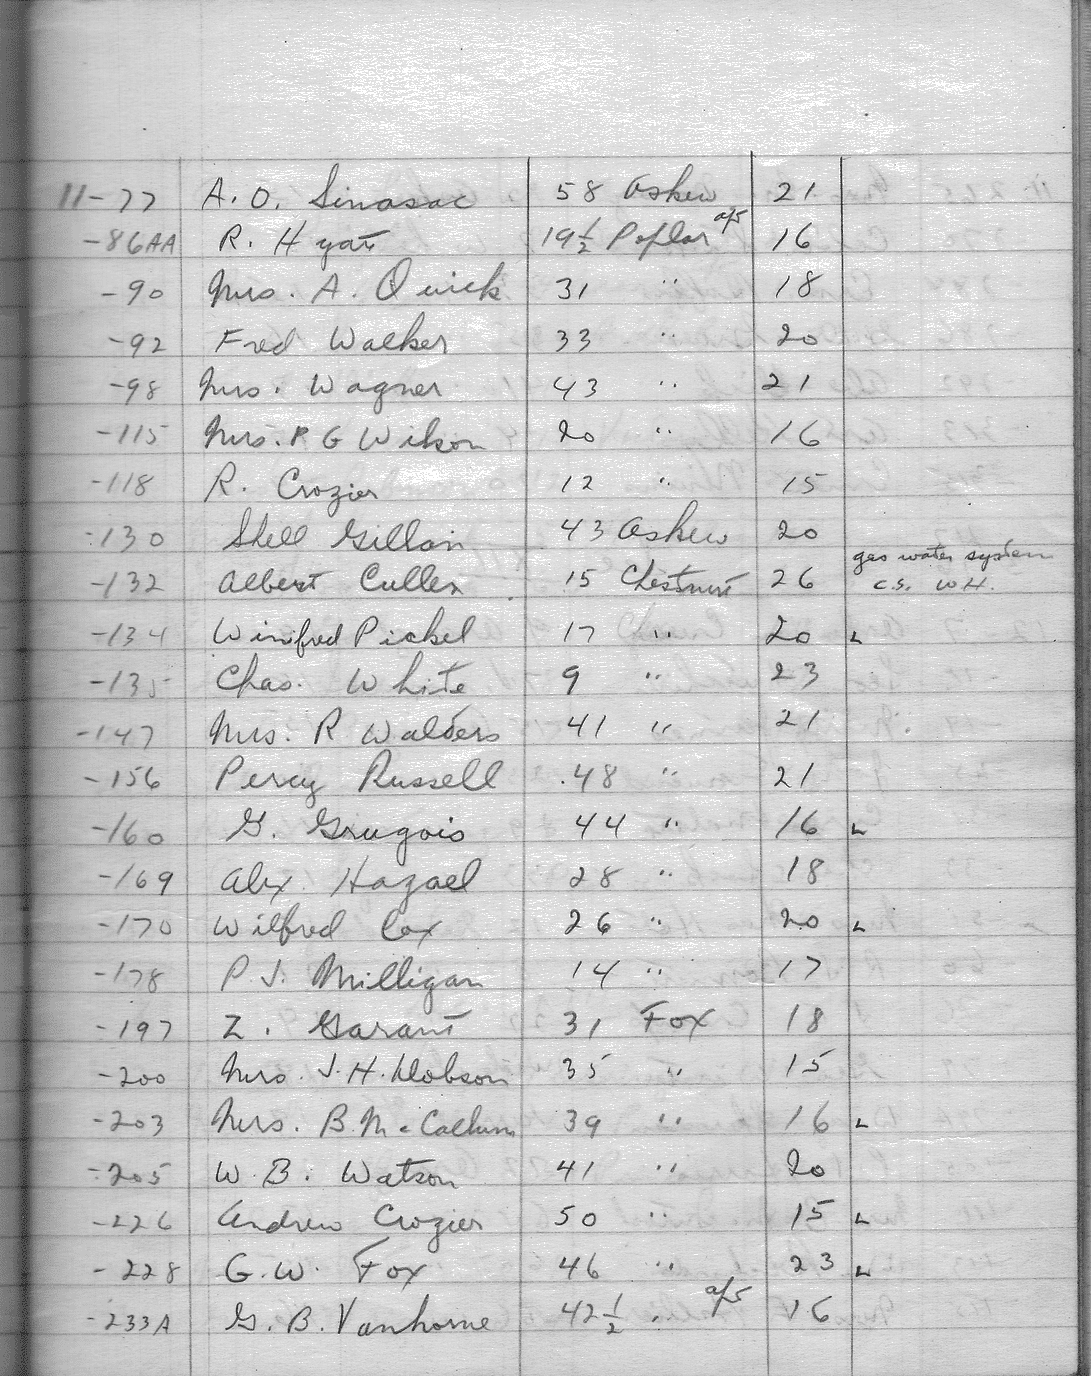 11-77 A. O. Sinasac 58 Askew 21
-86AA R. Hyatt 19½ Poplar apt 16
-90 Mrs. A. Quick 31 " 18
-92 Fred Walker 33 " 20
-98 Mrs. Wagner 43 " 21
-115 Mrs. R G Wilson 20 " 16
-118 R. Crozier 12 " 15
-130 Shell Gillan 43 Askew 20
-132 Albert Cullen 15 Chestnut 26 gas water system C.S. W.H.
-134 Winifred Pickel 17 " 20 L
-135 Chas. White 9 " 23
-147 Mrs. R Walders 41 " 21
-156 Percy Russell 48 " 21
-160 G. Grugois 44 " 16 L
-169 Alex Hazael 28 " 18
-170 Wilfred Cox 26 " 20 L
-178 P. J. Milligan 14 " 17
-197 Z. Garant 31 Fox 18
-200 Mrs. J. H. Dobson 35 " 15
-203 Mrs. B. McCallum 39 " 16 L
-205 W. B. Watson 41 " 20
-226 Andrew Crozier 50 " 15 L
-228 G. W. Fox 46 " 23 L
-233A G. B. Vanhorne 42½ " apt 16